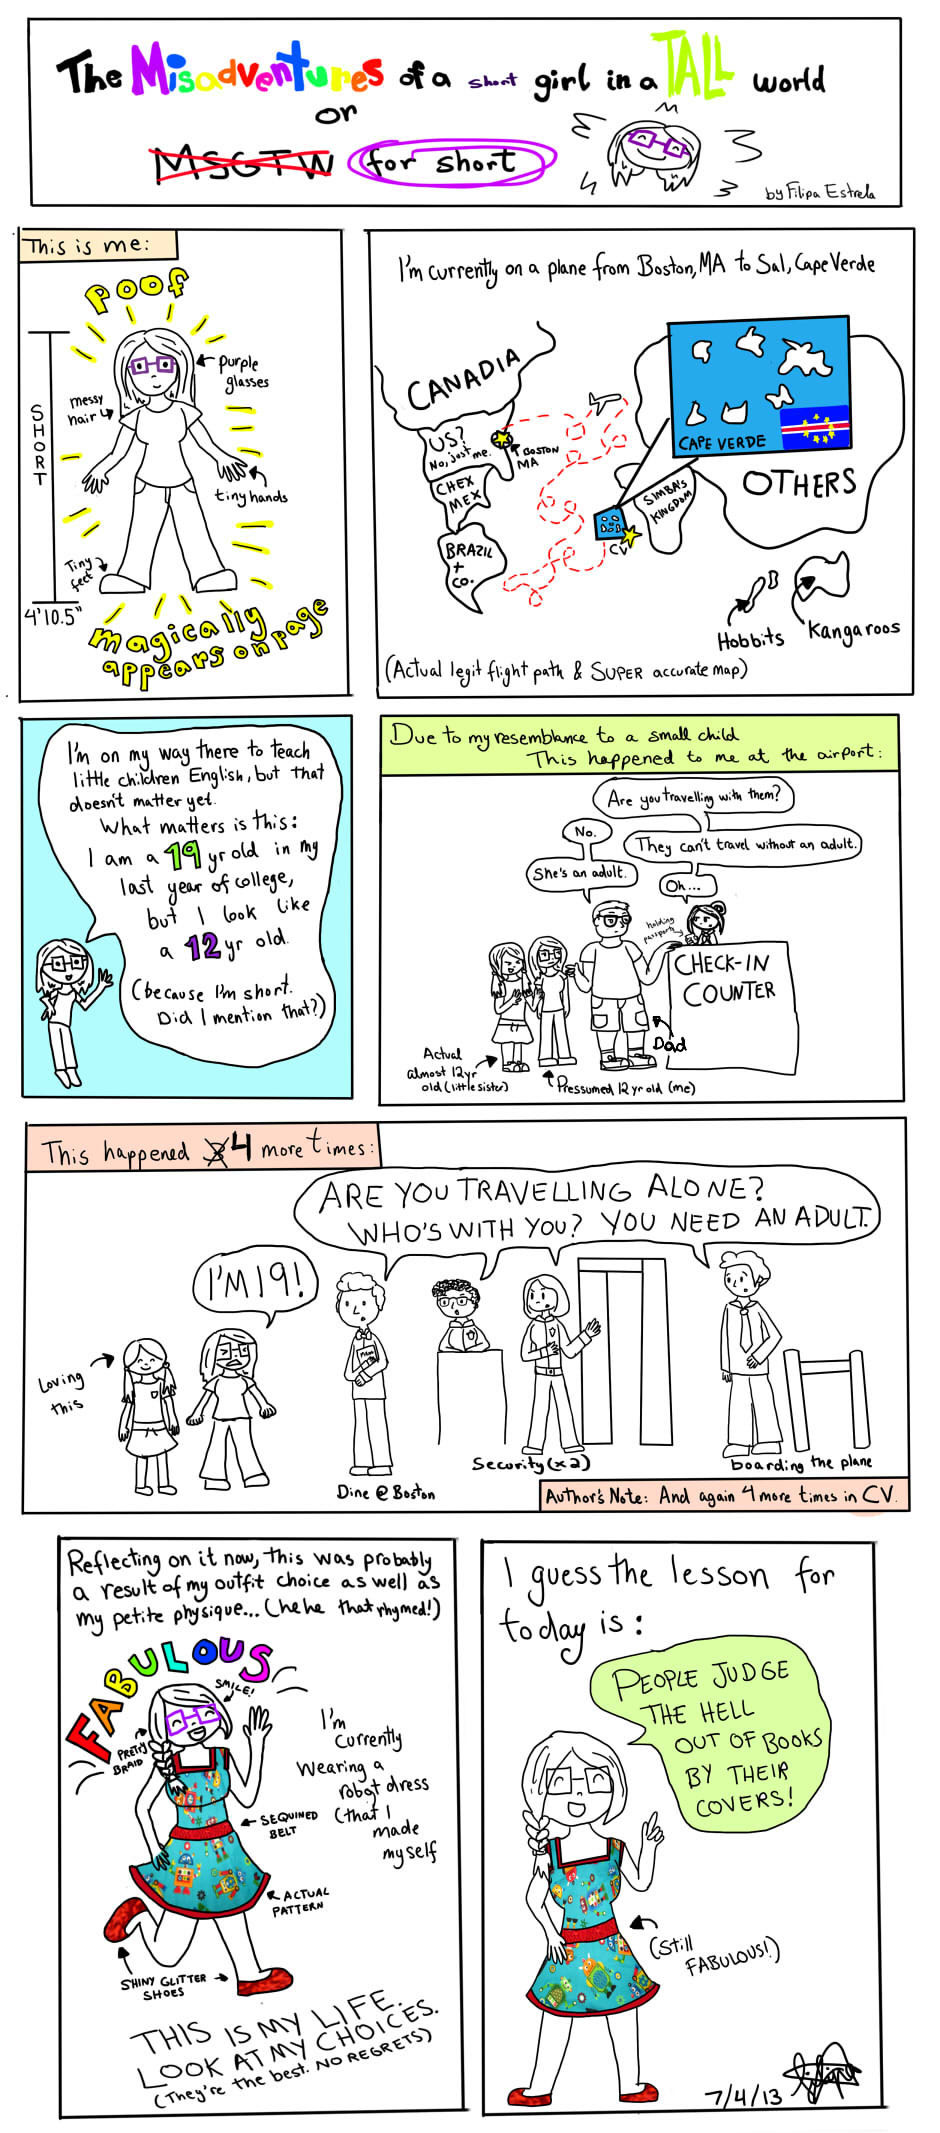 The Misadventures of a short girl in a TALL world
or
MSGTW for short
by Filipa Estrela
This is me:
POOF
purple
glasses
messy
hair
SHORT
tiny hands
Tiny
feet
4'10.5"
magically
appears on page
I'm currently on a plane from Boston, MA to Sal, Cape Verde
CANADIA
US?
No, just me.
BOSTON
MA
CHEX
MEX
BRAZIL
+
CO.
CAPE VERDE
SIMBA'S
KINGDOM
CV
OTHERS
Hobbits
Kangaroos
(Actual legit flight path & SUPER accurate map)
I'm on my way there to teach
little children English, but that
doesn't matter yet.
What matters is this:
I am a 19 yr old in my
last year of college,
but I look like
a 12 yr old.
(because I'm short.
Did I mention that?)
Due to my resemblance to a small child
This happened to me at the airport:
Are you travelling with them?
No.
They can't travel without an adult.
She's an adult.
Oh...
holding
passports
CHECK-IN
COUNTER
Dad
Actual
almost 12 yr
old (little sister)
Pressumed 12 yr old (me)
This happened 3 4 more times:
ARE YOU TRAVELLING ALONE?
WHO'S WITH YOU? YOU NEED AN ADULT.
I'M 19!
Loving
this
Menu
Dine @ Boston
Security (x2)
boarding the plane
Author's Note: And again 4 more times in CV.
Reflecting on it now, this was probably
a result of my outfit choice as well as
my petite physique... (hehe that rhymed!)
FABULOUS
SMILE!
PRETTY
BRAID
I'm
currently
wearing a
robot dress
(that I
made
myself
SEQUINED
BELT
ACTUAL
PATTERN
SHINY GLITTER
SHOES
THIS IS MY LIFE.
LOOK AT MY CHOICES.
(They're the best. NO REGRETS)
I guess the lesson for
today is:
PEOPLE JUDGE
THE HELL
OUT OF BOOKS
BY THEIR
COVERS!
(Still
FABULOUS!)
7/4/13